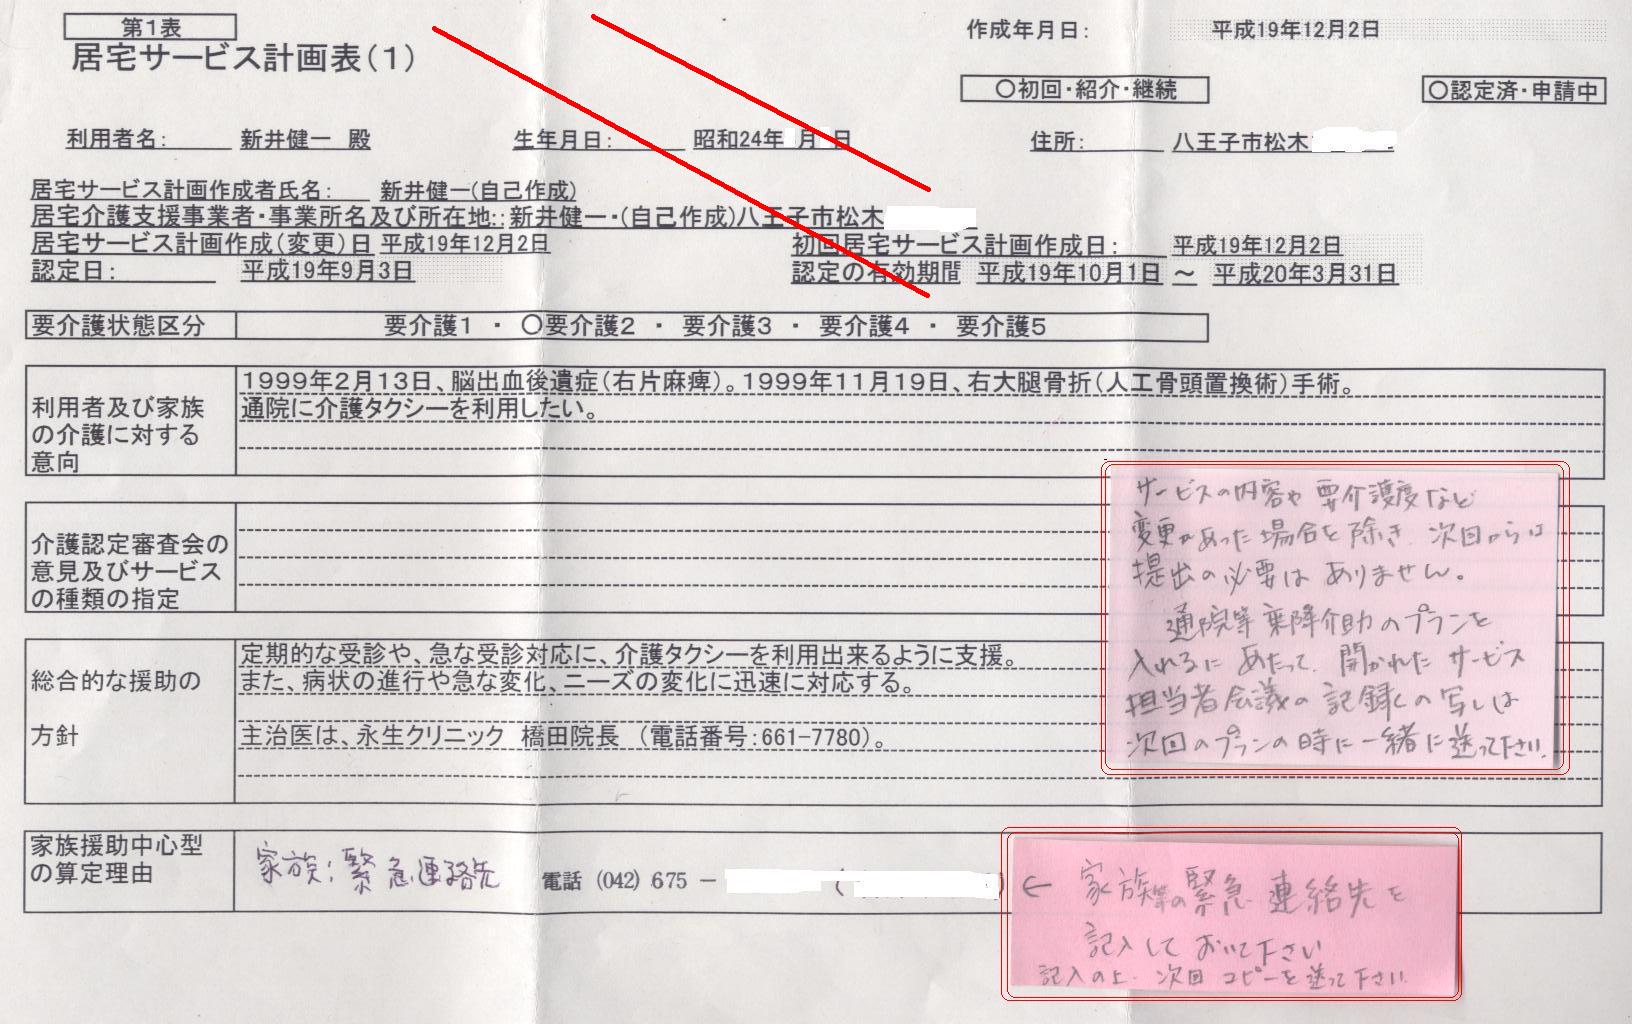 第1表
居宅サービス計画表(1)
作成年月日: 平成19年12月2日
○初回・紹介・継続
○認定済・申請中
利用者名: 新井健一 殿 生年月日: 昭和24年 月 日 住所: 八王子市松木
居宅サービス計画作成者氏名: 新井健一(自己作成)
居宅介護支援事業者・事業所名及び所在地:: 新井健一・(自己作成)八王子市松木
居宅サービス計画作成(変更)日 平成19年12月2日 初回居宅サービス計画作成日: 平成19年12月2日
認定日: 平成19年9月3日 認定の有効期間 平成19年10月1日 ~ 平成20年3月31日
要介護状態区分 要介護1 ・ ○要介護2 ・ 要介護3 ・ 要介護4 ・ 要介護5
利用者及び家族
の介護に対する
意向
1999年2月13日、脳出血後遺症(右片麻痺)。1999年11月19日、右大腿骨折(人工骨頭置換術)手術。
通院に介護タクシーを利用したい。
サービスの内容や要介護度など
変更があった場合を除き、次回からは
提出の必要はありません。
通院等乗降介助のプランを
入れるにあたって、開かれたサービス
担当者会議の記録の写しは
次回のプランの時に一緒に送って下さい。
介護認定審査会の
意見及びサービス
の種類の指定
総合的な援助の
方針
定期的な受診や、急な受診対応に、介護タクシーを利用出来るように支援。
また、病状の進行や急な変化、ニーズの変化に迅速に対応する。
主治医は、永生クリニック 橋田院長 (電話番号:661-7780)。
家族援助中心型
の算定理由
家族:緊急連絡先 電話 (042) 675 - ( )
← 家族等の緊急連絡先を
記入しておいて下さい
記入の上、次回コピーを送って下さい.